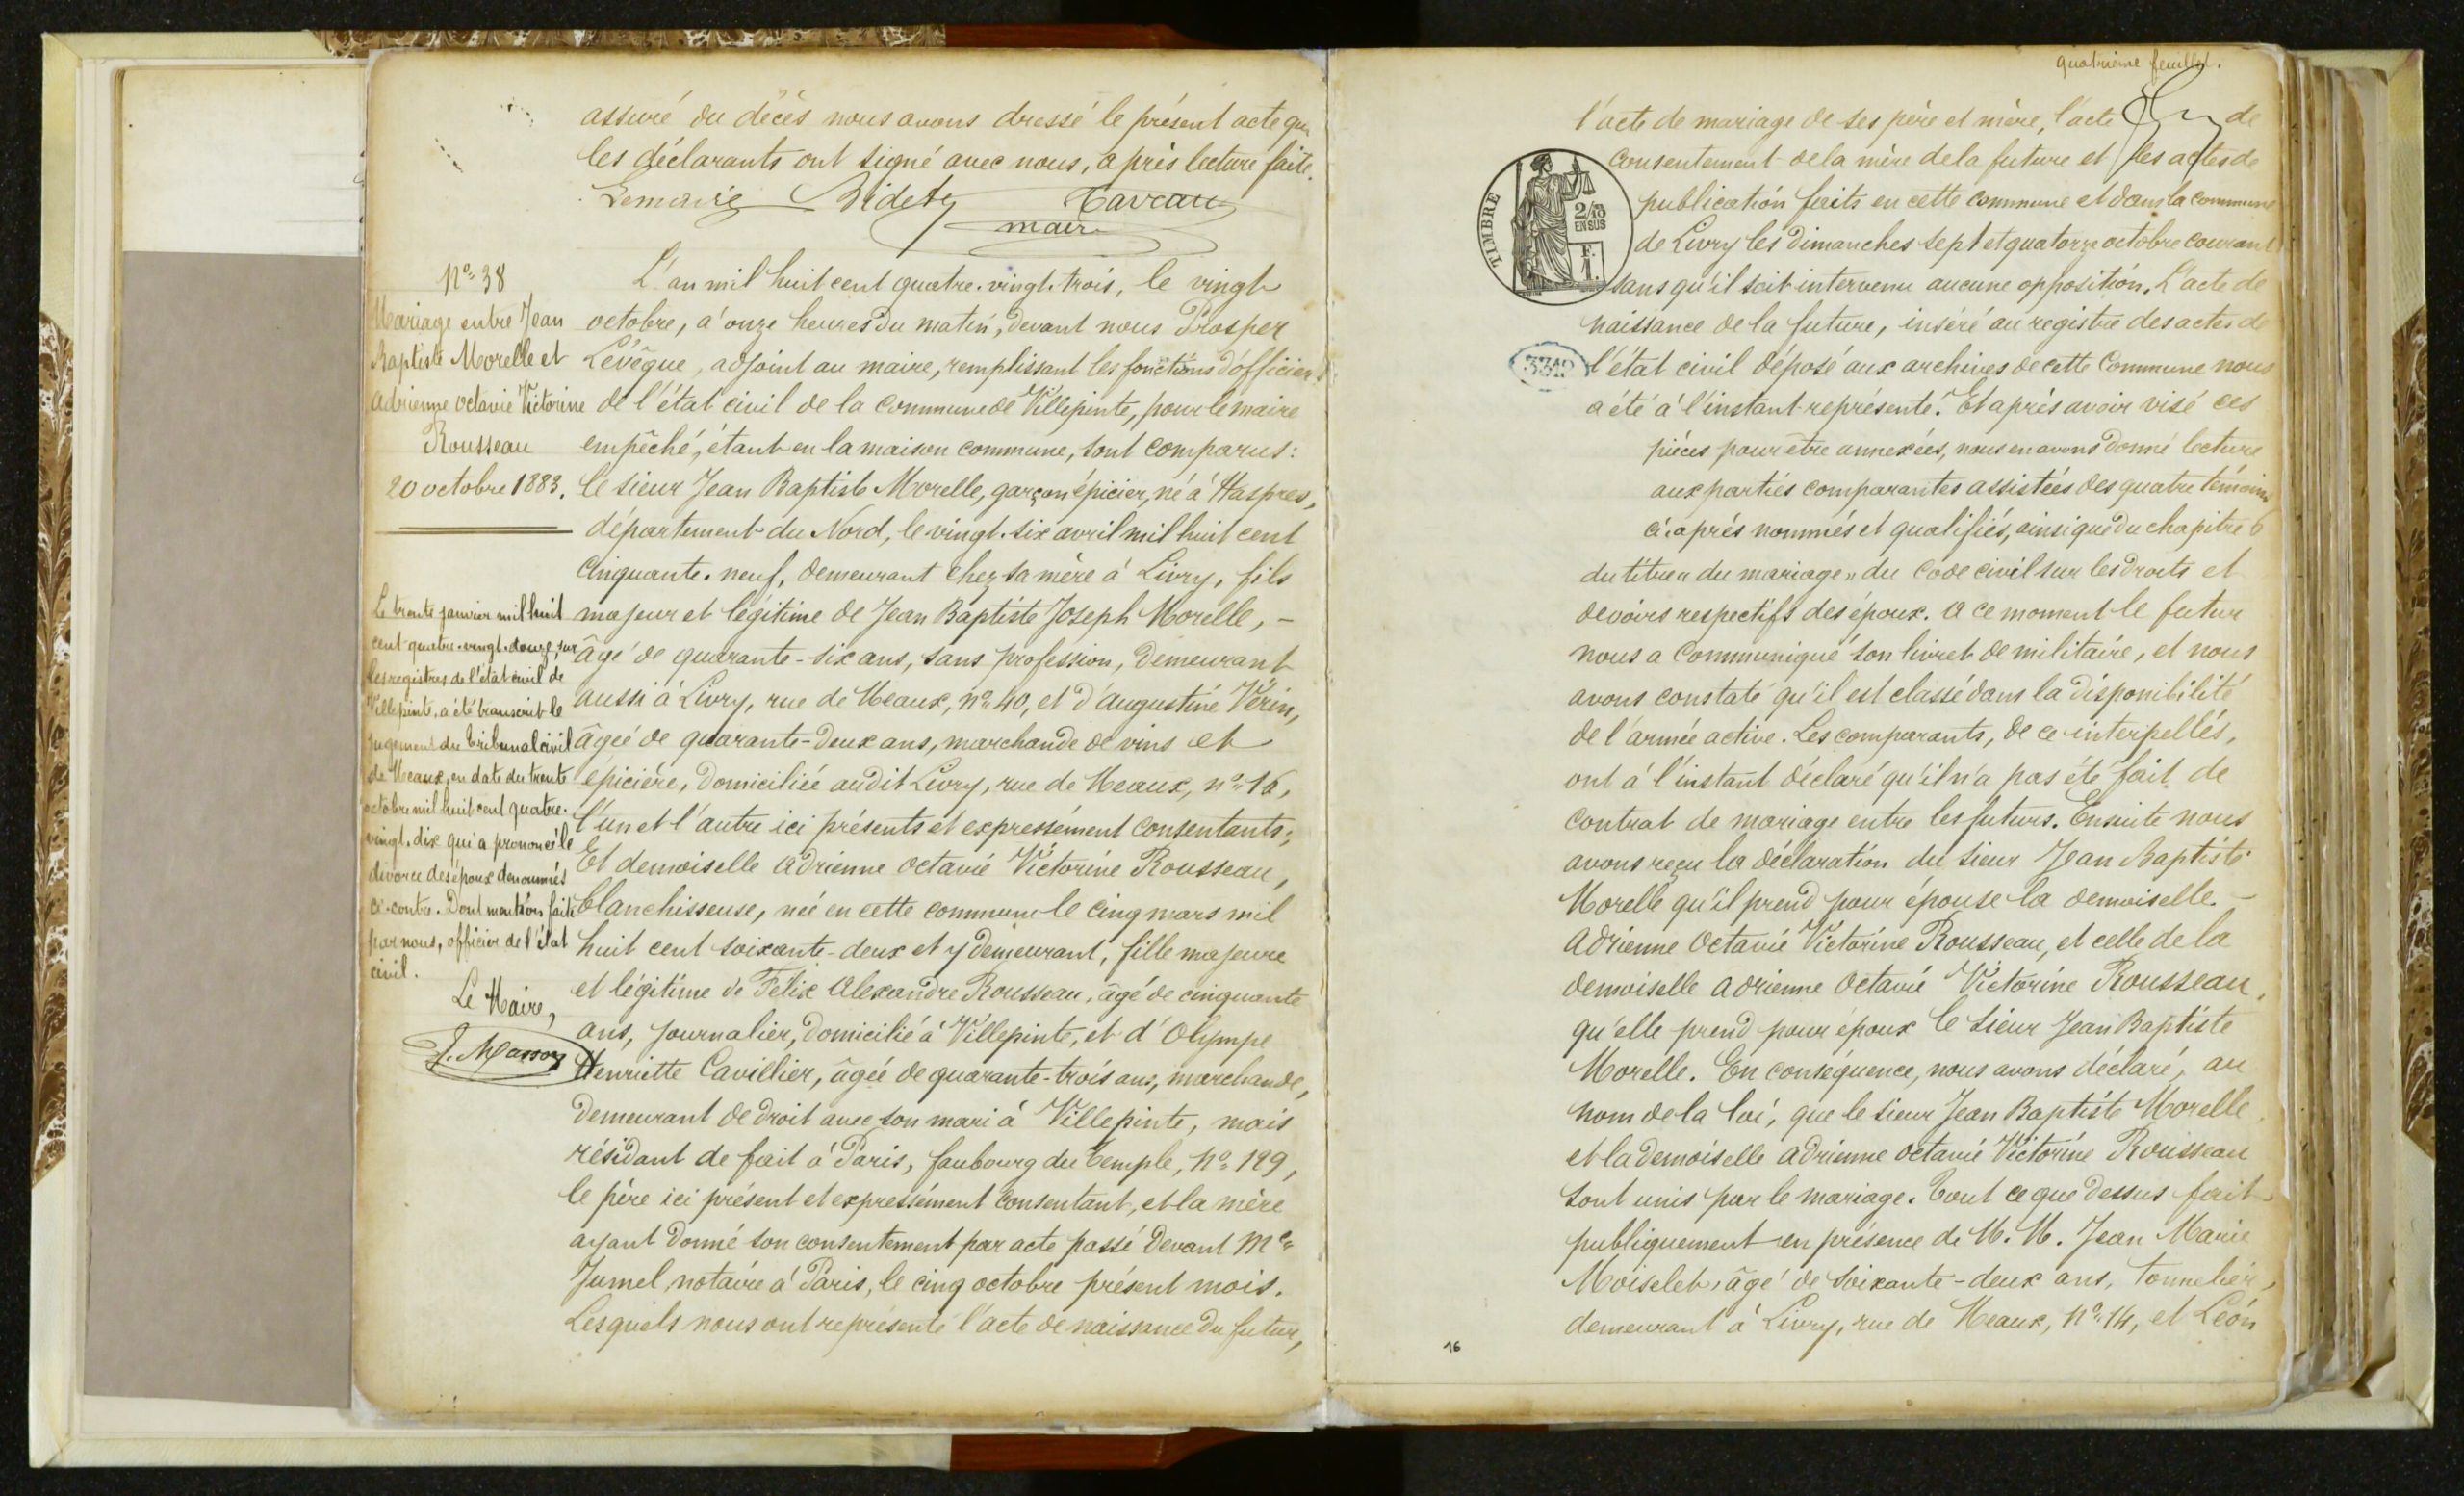 assuré du décès nous avons dressé le présent acte que
les déclarants ont signé avec nous, après lecture faite.
Lemairie Bidet Taveau
maire
N° 38
Mariage entre Jean
Baptiste Morelle et
Adrienne Octavie Victorine
Rousseau
20 octobre 1883.
Le trente janvier mil huit
cent quatre-vingt-douze, sur
les registres de l'état civil de
Villepinte, a été transcrit le
jugement du Tribunal civil
de Meaux, en date du trente
octobre mil huit cent quatre-
vingt-dix qui a prononcé le
divorce des époux dénommés
ci-contre. Dont mention faite
par nous, officier de l'état
civil.
Le Maire,
J. Masson
L'an mil huit cent quatre-vingt-trois, le vingt
octobre, à onze heures du matin, devant nous Prosper
Levêque, adjoint au maire, remplissant les fonctions d'officier
de l'état civil de la commune de Villepinte, pour le maire
empêché, étant en la maison commune, sont comparus:
le sieur Jean Baptiste Morelle, garçon épicier, né à Haspres,
département du Nord, le vingt-six avril mil huit cent
cinquante-neuf, demeurant chez sa mère à Livry, fils
majeur et légitime de Jean Baptiste Joseph Morelle, -
âgé de quarante-six ans, sans profession, demeurant
aussi à Livry, rue de Meaux, n° 40, et d'Augustine Vérin,
âgée de quarante-deux ans, marchande de vins et
épicière, domiciliée audit Livry, rue de Meaux, n° 16,
l'un et l'autre ici présents et expressément consentants;
Et demoiselle Adrienne Octavie Victorine Rousseau,
blanchisseuse, née en cette commune le cinq mars mil
huit cent soixante-deux et y demeurant, fille majeure
et légitime de Félix Alexandre Rousseau, âgé de cinquante
ans, journalier, domicilié à Villepinte, et d'Olympe
Henriette Cavillier, âgée de quarante-trois ans, marchande,
demeurant de droit avec son mari à Villepinte, mais
résidant de fait à Paris, faubourg du Temple, N° 129,
le père ici présent et expressément consentant, et la mère
ayant donné son consentement par acte passé devant Me
Jumel, notaire à Paris, le cinq octobre présent mois.
Lesquels nous ont représenté l'acte de naissance du futur,
quatrième feuillet.
l'acte de mariage de ses père et mère, l'acte de
consentement de la mère de la future et les actes de
publication faits en cette commune et dans la commune
de Livry les dimanches sept et quatorze octobre courant
sans qu'il soit intervenu aucune opposition. L'acte de
naissance de la future, inséré au registre des actes de
l'état civil déposé aux archives de cette Commune nous
a été à l'instant représenté. Et après avoir visé ces
pièces pour être annexées, nous en avons donné lecture
aux parties comparantes assistées des quatre témoins
ci-après nommés et qualifiés, ainsi que du chapitre 6
du titre « du mariage » du Code civil sur les droits et
devoirs respectifs des époux. A ce moment le futur
nous a communiqué son livret de militaire, et nous
avons constaté qu'il est classé dans la disponibilité
de l'armée active. Les comparants, de ce interpellés,
ont à l'instant déclaré qu'il n'a pas été fait de
contrat de mariage entre les futurs. Ensuite nous
avons reçu la déclaration du sieur Jean Baptiste
Morelle qu'il prend pour épouse la demoiselle. -
Adrienne Octavie Victorine Rousseau, et celle de la
demoiselle Adrienne Octavie Victorine Rousseau,
qu'elle prend pour époux le sieur Jean Baptiste
Morelle. En conséquence, nous avons déclaré, au
nom de la loi, que le sieur Jean Baptiste Morelle
et la demoiselle Adrienne Octavie Victorine Rousseau
sont unis par le mariage. Tout ce que dessus fait
publiquement en présence de M. M. Jean Marie
Moiselet, âgé de soixante-deux ans, tonnelier,
demeurant à Livry, rue de Meaux, N° 14, et Léon
TIMBRE
2/10
EN SUS
F.
1.
16